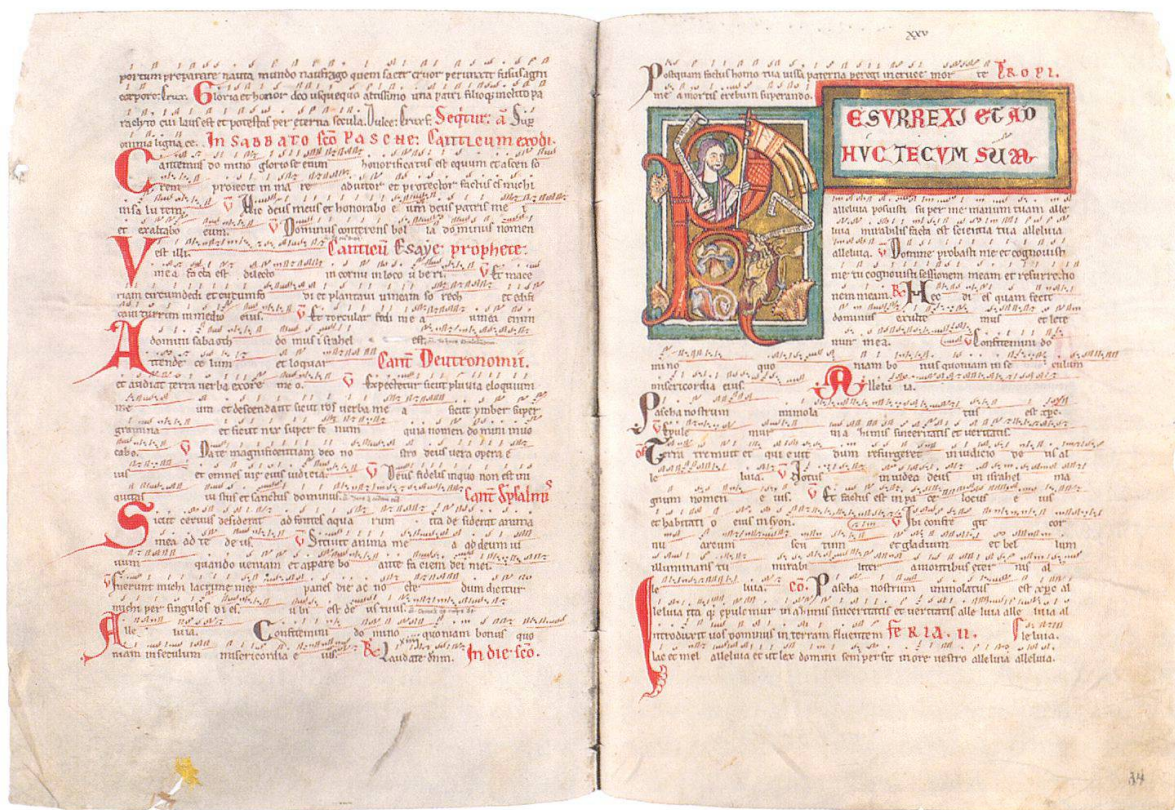 portum preparare nauta mundo naufrago quem sacer cruor perunxit fusus agni
corpore. Crux. Gloria et honor deo usquequo altissimo una patri filioque inclito pa
raclyto cui laus est et potestas per eterna secula. Dulce. Crux f. Seqtur. a Sup
omnia ligna ce. In SABBATO sco PASCHE. Canticum exodi.
Cantemus do mino gloriose enim honorificatus est equum et ascen so
rem proiecit in ma re adiutor et protector factus est michi
in sa lu tem. V Hic deus meus et honorabo e um deus patris me i
et exaltabo eum. V Dominus conterens bel la dominus nomen
est illi. Canticu Esaye prophete.
Vinea facta est dilecto in cornu in loco u beri. V Et mace
riam circumdedit et circumfo dit et plantavit vineam so rech et edifi
cavit turrim in medio eius. V Et torcular fodit in e a vinea enim
domini sabaoth do mus israhel est.
Cant Deutronomii.
Attende ce lum et loquar
et audiat terra verba ex ore me o. V Expectetur sicut pluvia eloquium
me um et descendant sicut ros verba me a sicut ymber super
gramina et sicut nix super fe num quia nomen domini invo
cabo. V Date magnificentiam deo no stro deus vera opera e
ius et omnes vie eius iudicia. V Deus fidelis in quo non est ini
quitas iustus et sanctus dominus. Cant
Sicut cervus desiderat ad fontes aqua rum ita desiderat anima
mea ad te de us. V Sitivit anima me a ad deum vi
vum quando veniam et apparebo ante faciem dei mei.
V Fuerunt michi lacrime mee panes die ac no cte dum dicitur
michi per singulos di es. u bi est de us tuus.
Alle luia. Confitemini do mino quoniam bonus quo
niam in seculum misericordia e ius. R Laudate dnm. In die sco.
XXV
Postquam factus homo tua iussa paterna peregi in cruce mor te TROPI.
me a mortis erebum superando.
RESURREXI ET AD
HUC TECUM SUM
alleluia posuisti super me manum tuam alle
luia mirabilis facta est scientia tua alleluia
alleluia. V Domine probasti me et cognovisti
me tu cognovisti sessionem meam et resurrectio
nem meam. R Hec di es quam fecit
dominus exulte mus et lete
mur in e a. V Confitemini do
mino quo niam bo nus quoniam in se culum
misericordia eius. Allelu ia.
Pascha nostrum immola tus est xpc.
V Epule mur in a zimis sinceritatis et veritatis.
of Terra tremuit et qui e vit dum resurgeret in iudicio de us al
le luia. V Notus in iudea deus in israhel ma
gnum nomen e ius. V Et factus est in pa ce locus e ius
et habitati o eius in syon. V Ibi confre git cor
nu arcum scu tum et gladium et bel lum
illuminans tu mirabi liter a montibus eter nis al
le luia. Co. Pascha nostrum immolatus est xpc al
leluia ita q epule mur in a zimis sinceritatis et veritatis alle luia alle luia al
leluia.
FERIA. II.
Introduxit vos dominus in terram fluentem
lac et mel alleluia et ut lex domini semper sit in ore vestro alleluia alleluia.
34